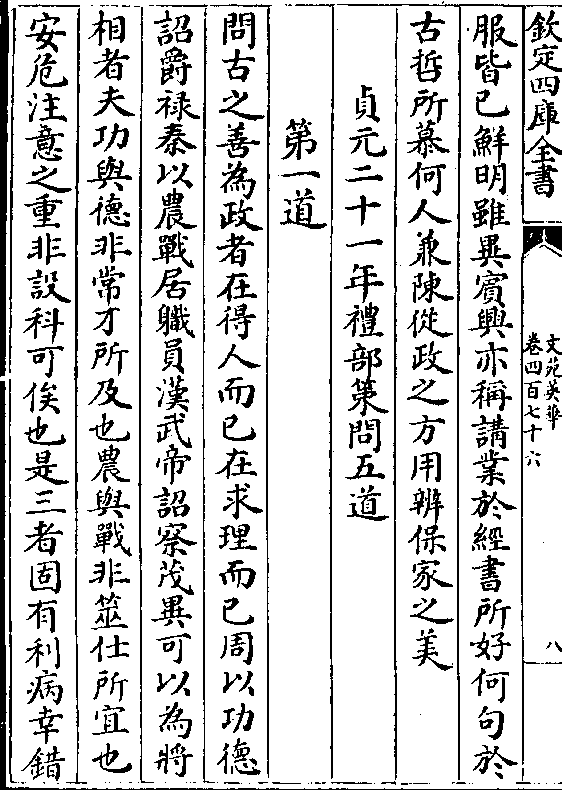 欽定四庫全書
文苑英華
卷四百七十六
八
服皆已鮮明雖異賓興亦稱講業於經書所好何句於
古哲所慕何人兼陳從政之方用辨保家之美
貞元二十一年禮部策問五道
第一道
問古之善為政者在得人而已在求理而已周以功德
詔爵禄秦以農戰居軄員漢武帝詔察茂異可以為將
相者夫功與德非常才所及也農與戰非筮仕所宜也
安危注意之重非設科可俟也是三者固有利病幸錯